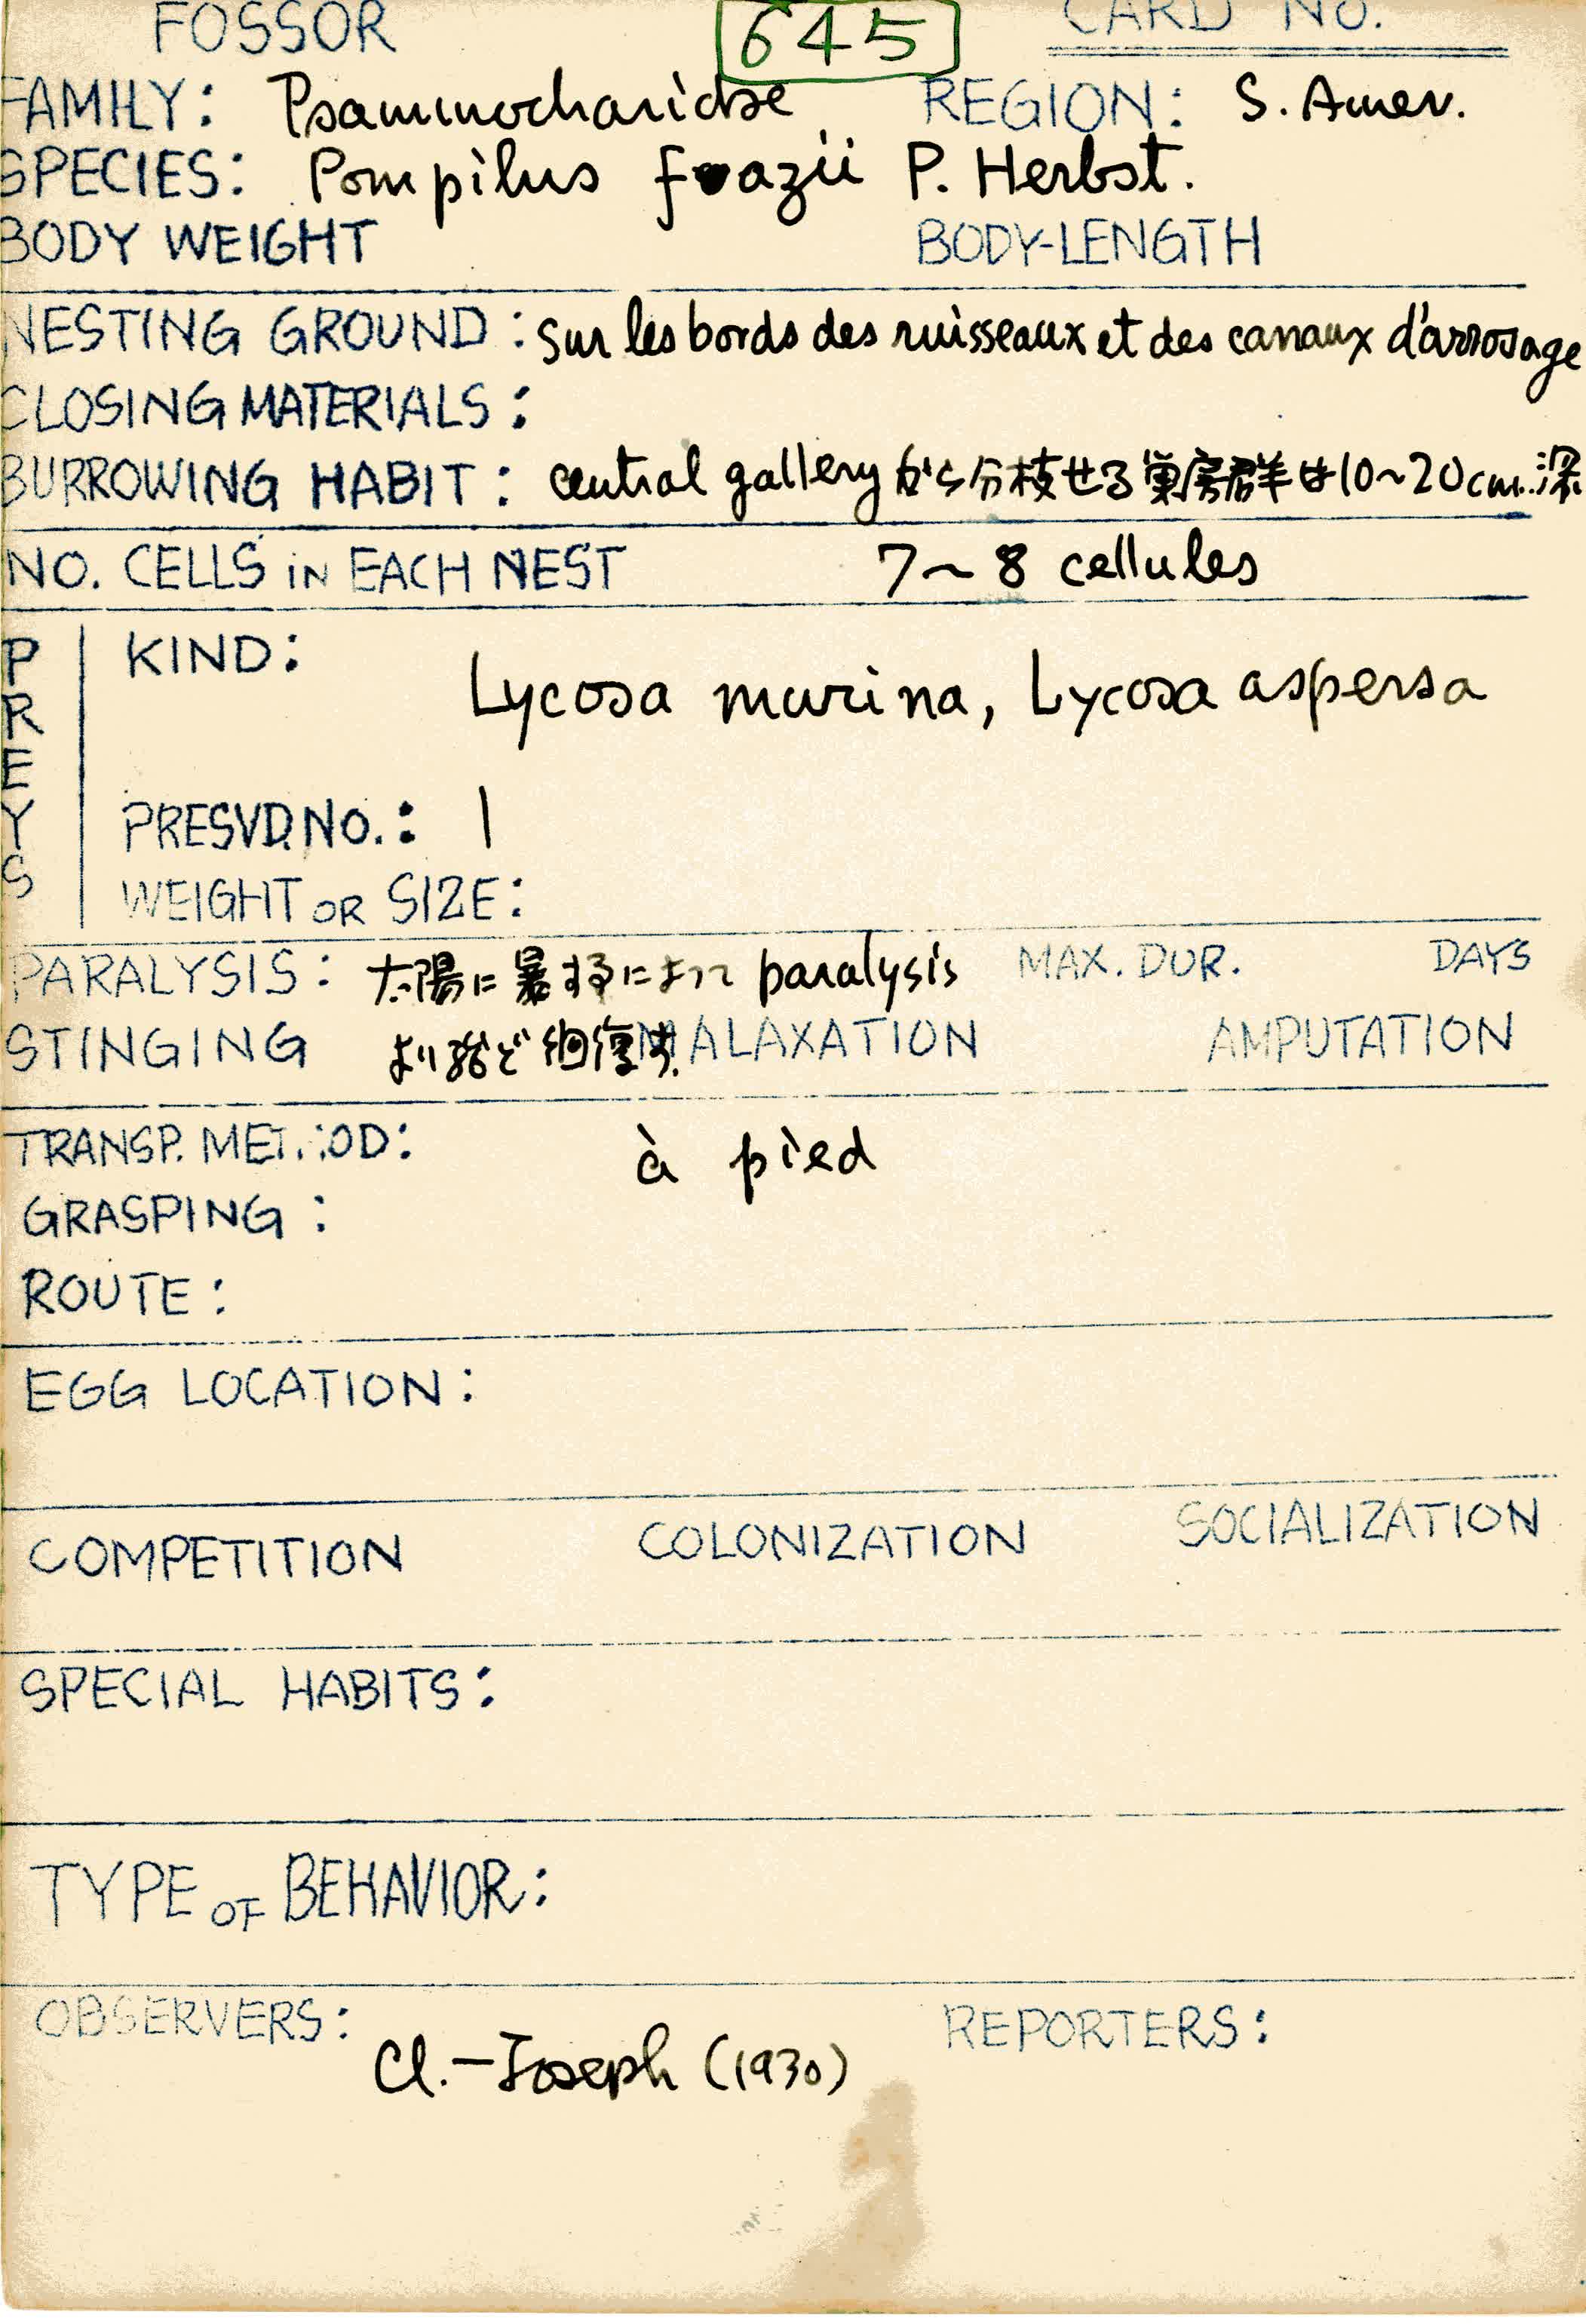 FOSSOR 645 CARD NO.
FAMILY: Psammocharidae REGION: S. Amer.
SPECIES: Pompilus P. Herbst.
BODY WEIGHT BODY-LENGTH
NESTING GROUND: Sur les bords des ruisseaux et des canaux d'arrosage
CLOSING MATERIALS:
BURROWING HABIT: central gallery から分枝せる巣房群は10~20cm.深
NO. CELLS IN EACH NEST 7~8 cellules
PREYS
KIND: Lycosa murina, Lycosa aspersa
PRESVD.NO.: 1
WEIGHT OR SIZE:
PARALYSIS: 太陽に暴するによって paralysis MAX. DUR. DAYS
STINGING より殆ど回復す. MALAXATION AMPUTATION
TRANSP. METHOD: à pied
GRASPING:
ROUTE:
EGG LOCATION:
COMPETITION COLONIZATION SOCIALIZATION
SPECIAL HABITS:
TYPE OF BEHAVIOR:
OBSERVERS: Cl.-Joseph (1930) REPORTERS: